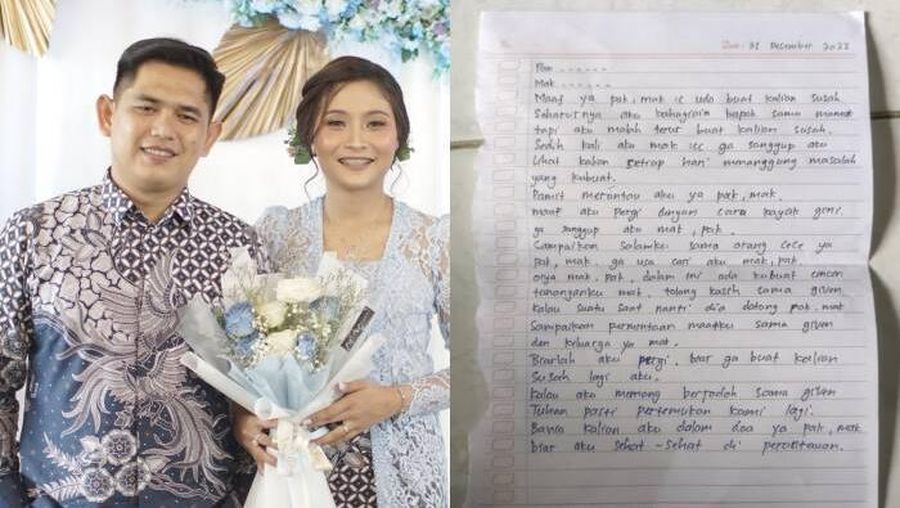 31 Desember 2022
Pak ------
Mak ------
Maaf ya pak, mak ic uda buat kalian susah
Seharusnya aku bahagiain bapak sama mamak
tapi aku malah terus buat kalian susah.
Sedih kali aku mak ga sanggup aku
Lihat kalian setiap hari menanggung masalah
yang kubuat.
Pamit merantau aku ya pak, mak.
maaf aku pergi dengan cara kayak gini.
ga sanggup aku mak, pak.
Sampaikan salamku sama orang cece ya
pak, mak. ga usa cari aku mak, pak.
oiya mak, pak, dalam ini ada kubuat cincin
tunanganku mak, tolong kasih sama given.
Kalau suatu saat nanti dia datang pak, mak
Sampaikan permintaan maafku sama given
dan keluarga ya mak.
Biarlah aku pergi, biar ga buat kalian
Susah lagi aku.
Kalau aku memang berjodoh sama given
Tuhan pasti pertemukan kami lagi.
Bawa kalian aku dalam doa ya pak, mak
biar aku sehat-sehat di perantauan.